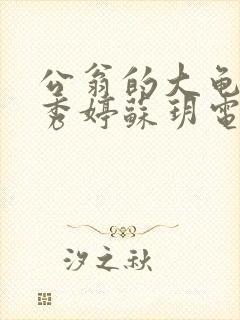 公翁的大龟
秀婷蘇玥電
汐之秋